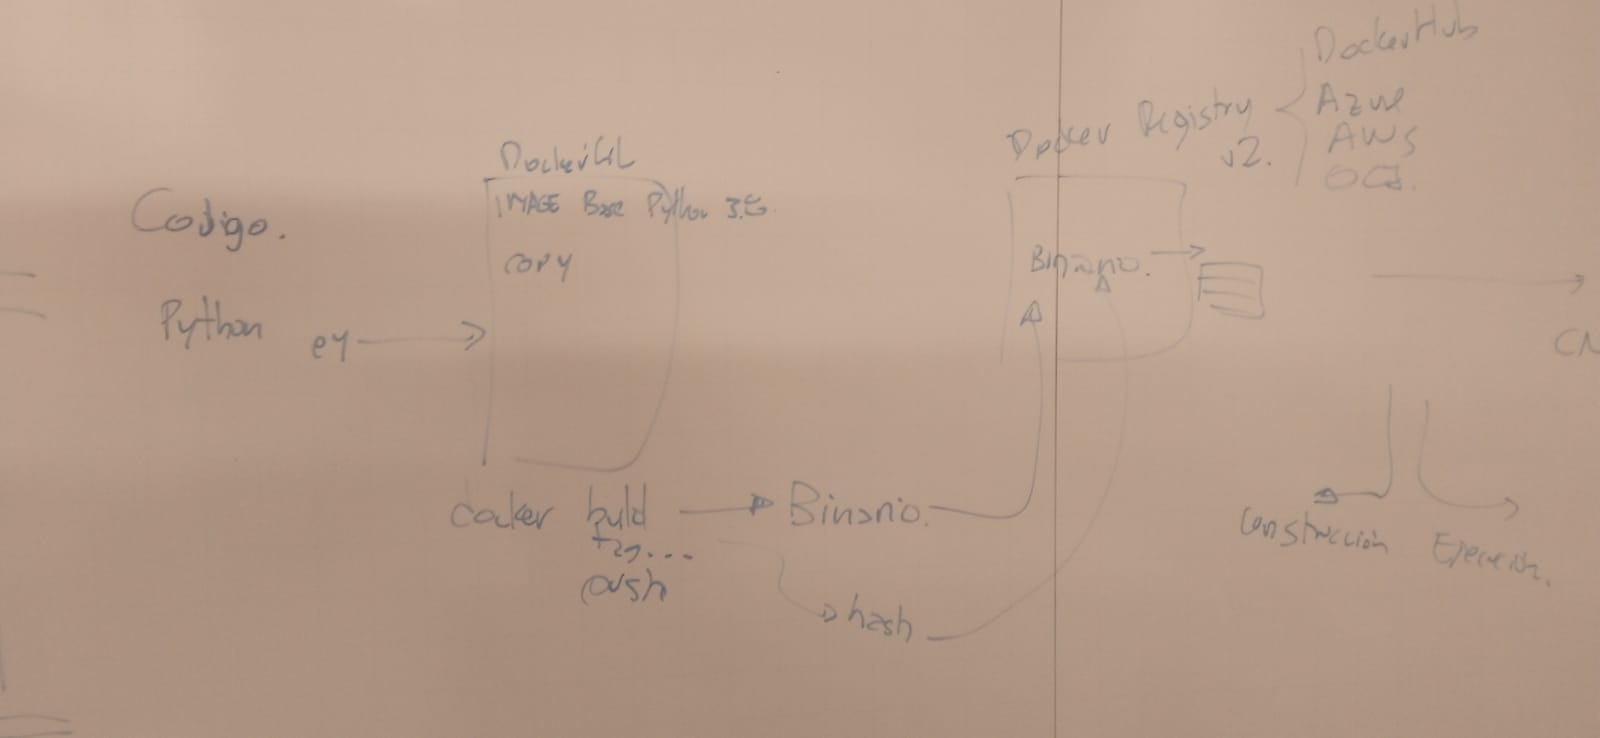 Codigo.
Python
ey
Dockerfile
IMAGE Base Python 3.5
COPY
docker build
tag...
push
Binario.
hash
Docker Registry
v2.
DockerHub
Azure
AWS
Binario.
Construcción
Ejecución.